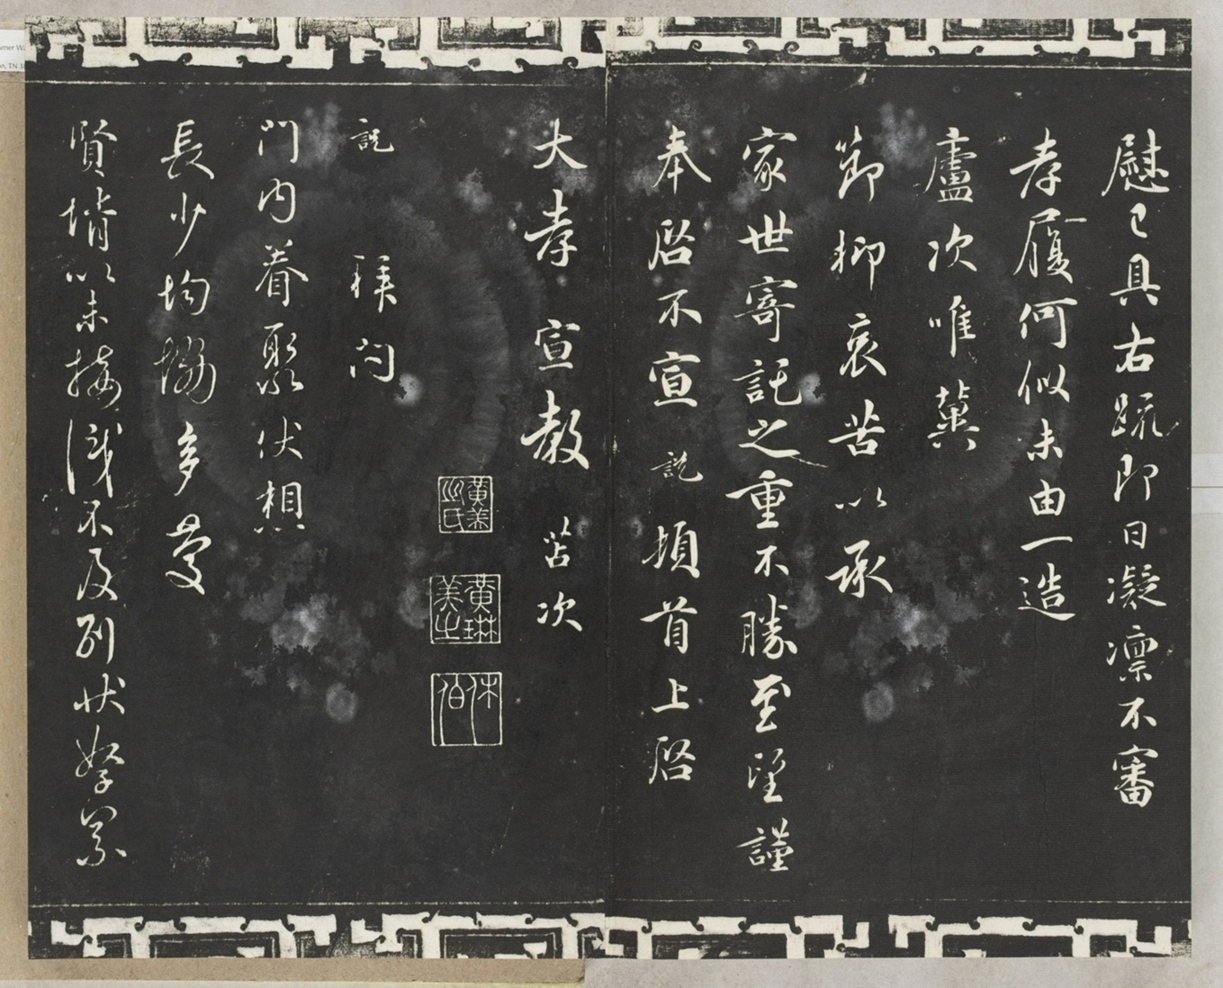 慰已具右疏即日凝凛不審
孝履何似未由一造
廬次唯冀
節抑哀苦以承
家世寄託之重不勝至望謹
奉啓不宣說頓首上啓
大孝宣教 苫次
黃美之氏
黃琳美之
休伯
說 拜問
門內眷聚伏想
長少均協多慶
賢壻以未接識不及列狀